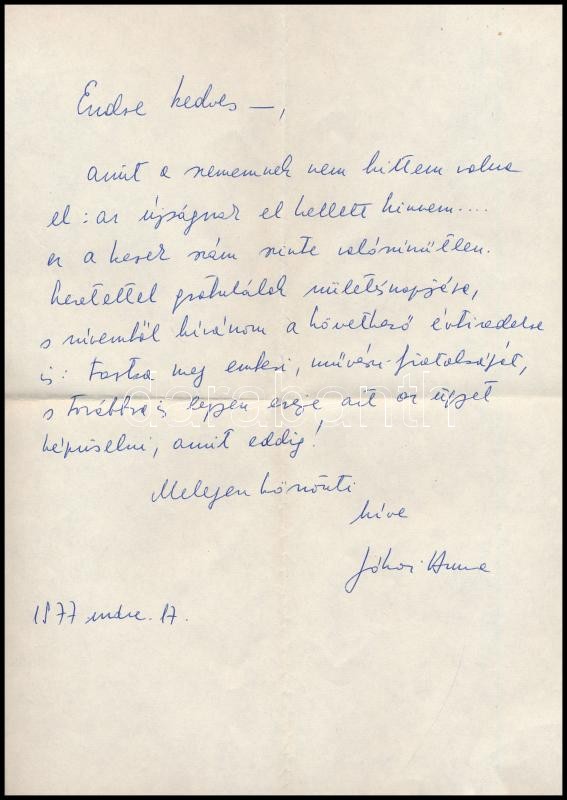 Endre kedves —,
amit a szememnek nem hittem volna
el: az újságnak el kellett hinnem....
ez a kerek szám szinte valószinütlen.
Szeretettel gratulálok születésnapjára,
s szivemből kívánom a következő évtizedekre
is: tartsa meg emberi, művészi fiatalságát,
s továbbra is legyen ereje azt az ügyet
képviselni, amit eddig!
Melegen köszönti
híve
Jókai Anna
1977 márc. 17.
darabanth